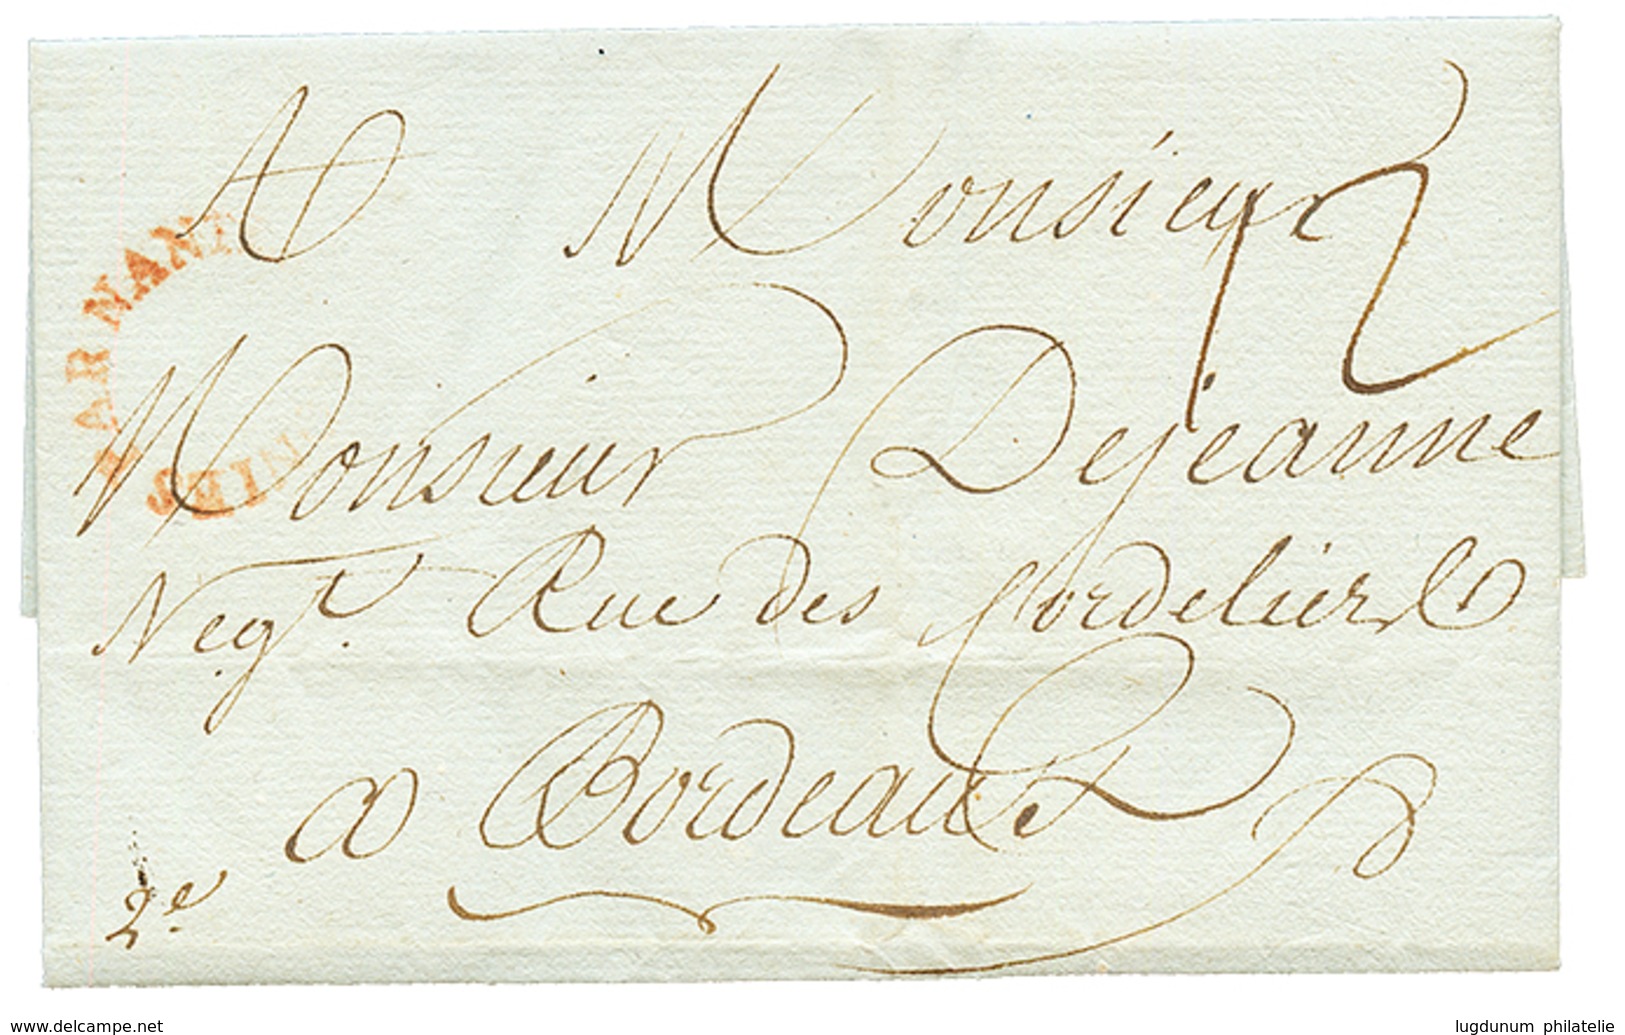 A Monsieur
12
Monsieur Dejeanne
Negt. Rue des Cordeliers
a Bordeaux
2e
delcampe.net
lugdunum philatelie